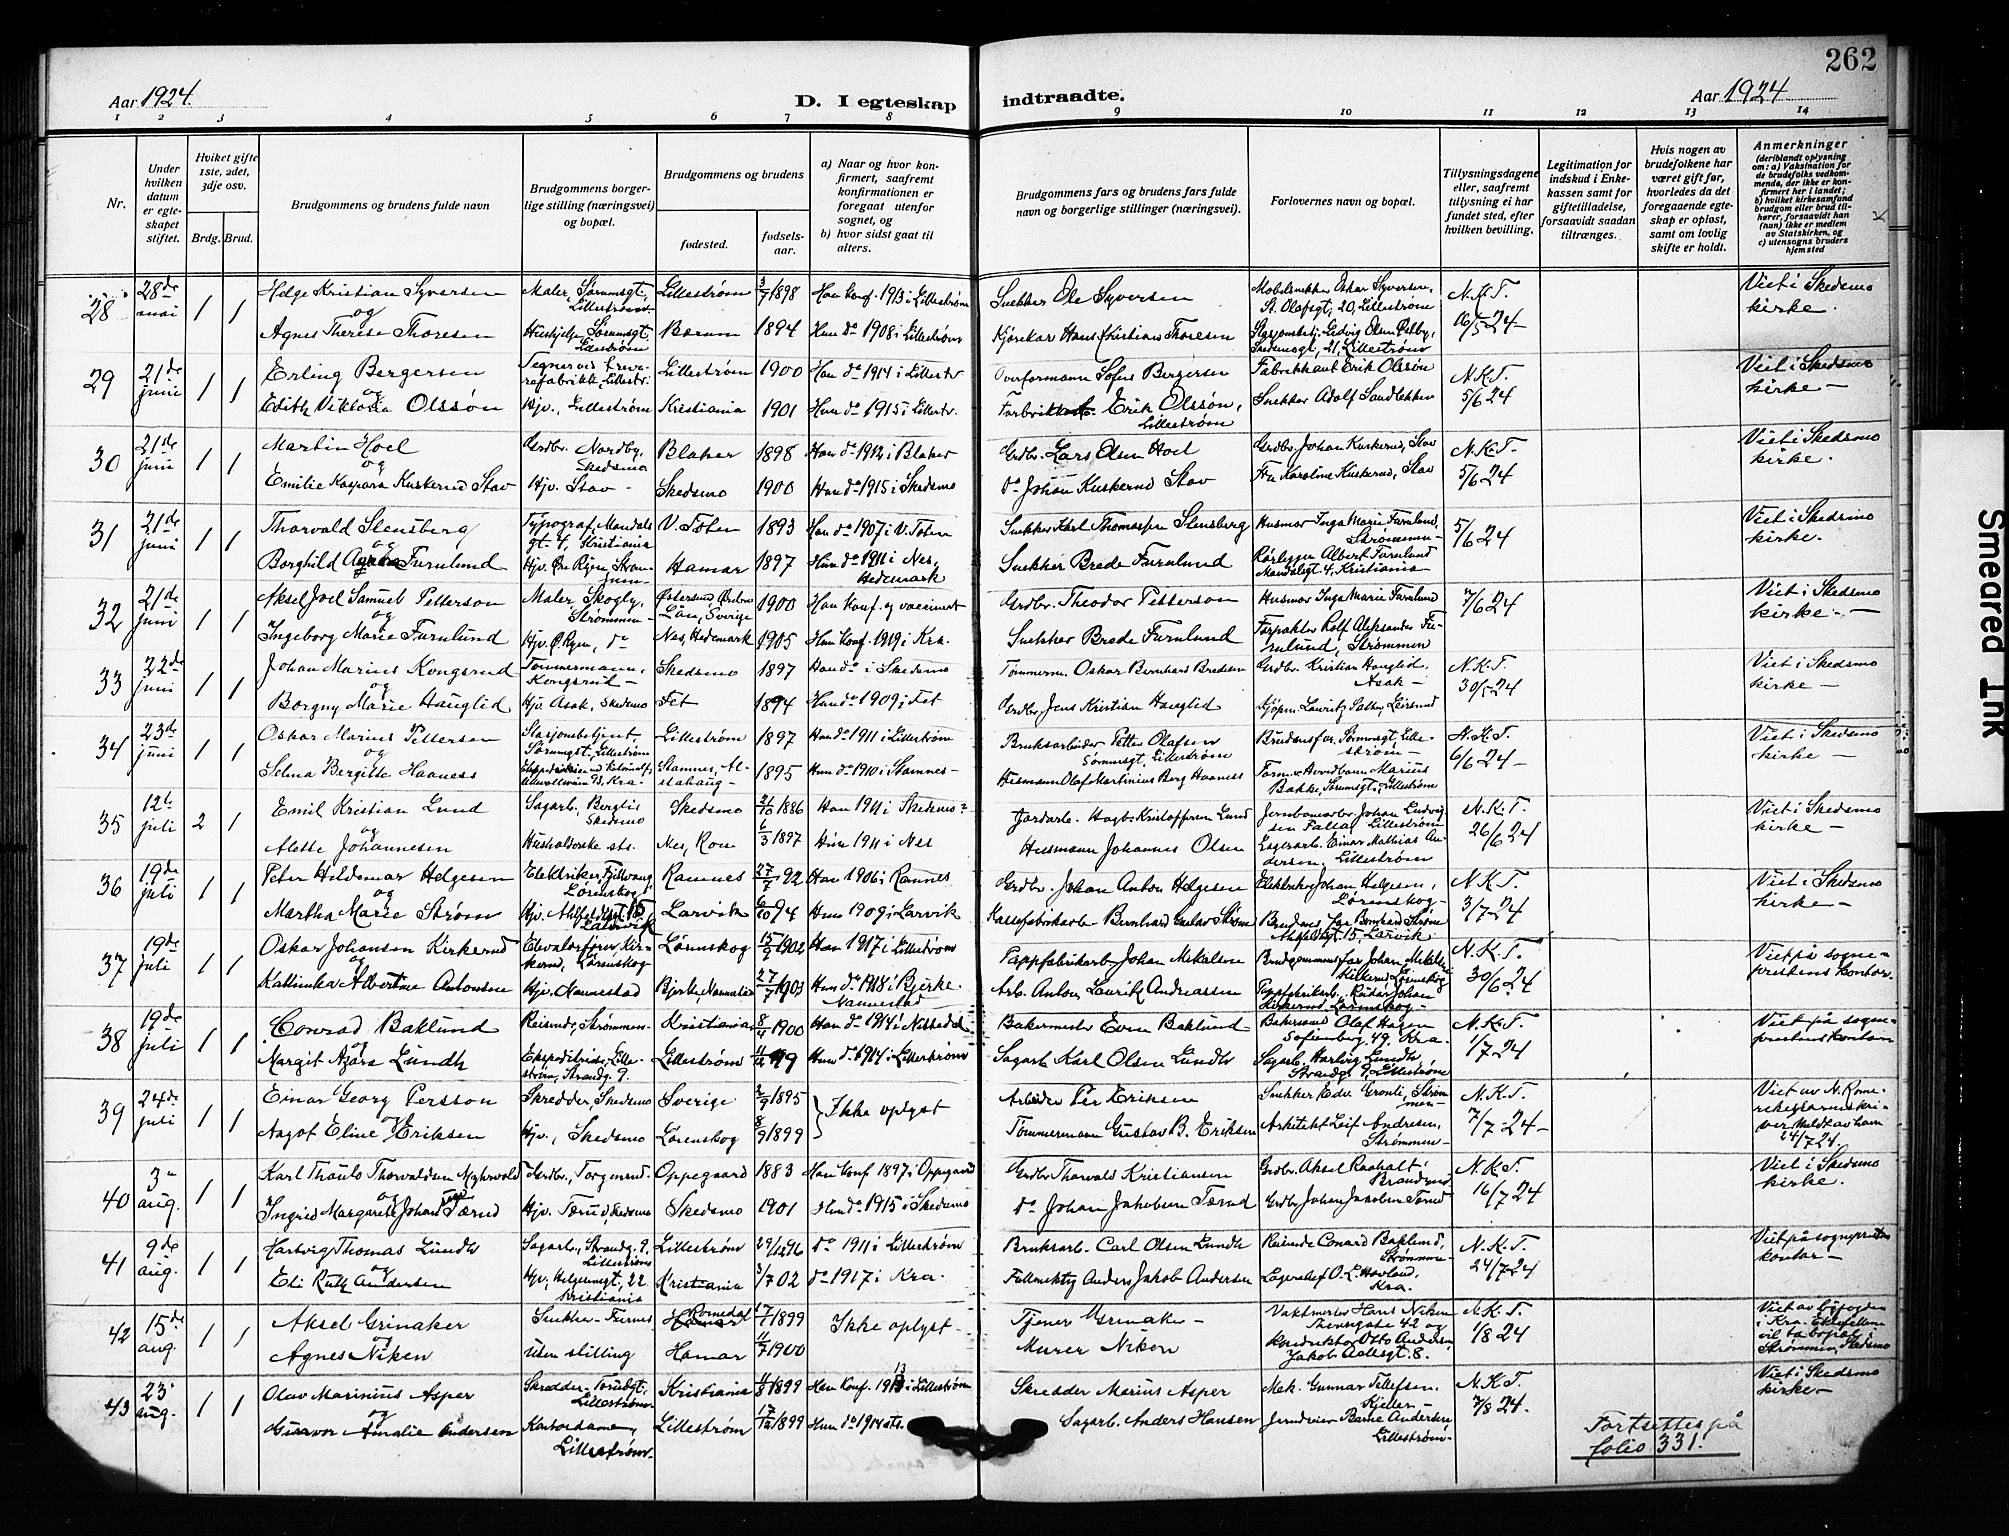 262
Aar 1924.
D. I egteskap
indtraadte.
Aar 1924
1 2 3 4 5 6 7 8 9 10 11 12 13 14
Nr.
Under hvilken datum er egteskapet stiftet.
Hviket gifte 1ste, 2det, 3dje osv.
Brdg. Brud.
Brudgommens og brudens fulde navn
Brudgommens borgerlige stilling (næringsvei) og bopæl.
Brudgommens og brudens
fødested.
fødselsaar.
a) Naar og hvor konfirmert, saafremt konfirmationen er foregaat utenfor sognet, og
b) hvor sidst gaat til alters.
Brudgommens fars og brudens fars fulde navn og borgerlige stillinger (næringsvei).
Forlovernes navn og bopæl.
Tillysningsdagene eller, saafremt tillysning ei har fundet sted, efter hvilken bevilling.
Legitimation for indskud i Enkekassen samt for giftetilladelse, forsaavidt saadan tiltrænges.
Hvis nogen av brudefolkene har været gift før, hvorledes da det foregaaende egteskap er opløst, samt om lovlig skifte er holdt.
Anmerkninger
(deriblandt oplysning om: a) Vaksination for de brudefolks vedkommende, der ikke er konfirmert her i landet; b) hvilket kirkesamfund brudgom eller brud tilhører, forsaavidt han (hun) ikke er medlem av Statskirken, og c) utensogns bruders hjemsted
28 28de mai 1 1
Helge Kristian Syversen Maler, Sørumsgt. Lillestrøm Lillestrøm 3/7 1898 Han konf. 1913 i Lillestrøm Snekker Ole Syversen Møbelsnekker Oskar Syversen, St. Olafsgt, 20, Lillestrøm N.K.T. Viet i Skedsmo kirke.
og
Agnes Therese Thoresen Hushjelp, Sørumsgt. Lillestrøm Bærum 1894 Hun do 1908 i Lillestrøm Kjørekar Hans Kristian Thoresen Skedsmogt, 21, Lillestrøm
29 21de juni 1 1
Erling Bergersen Lillestrøm 1900 Han do 1914 i Lillestr Overformann Sofus Bergersen Fabrikkant Erik Olssøn N.K.T. 5/6 24 Viet i Skedsmo kirke —
og
Edith Viktoria Olssøn Hjv., Lillestrøm Kristiania 1901 Hun do 1915 i Lillestr. Erik Olssøn, Lillestrøm Snekker Adolf Sandbekken
30 21de juni 1 1
Martin Hoel Grdbr. Nordby, Skedsmo Blaker 1898 Han do 1912 i Blaker Grdbr. Lars Olsen Hoel Grdbr Johan Kuskerud, Stav N.K.T. 5/6 24 Viet i Skedsmo kirke.
og
Emilie Kaspara Kuskerud Stav Hjv. Stav - Skedsmo 1900 Hun do 1915 i Skedsmo do Johan Kuskerud Stav Fru Karoline Kuskerud, Stav
31 21de juni 1 1
Thorvald Stensberg Typograf, Mandalsgt. 4, Kristiania V. Toten 1893 Han do 1907 i V. Toten Snekker Karl Thomassen Stensberg Husmor Inga Marie Furulund, Strømmen - 5/6 24 Viet i Skedsmo kirke.
og
Borghild Furulund Hamar 1897 Hun do 1911 i Nes, Hedemark Snekker Brede Furulund Rørlegger Albert Furulund Mandalsgt 4, Kristiania
32 21de juni 1 1
Aksel Joel Samuel Petterson Maler, Skogly, Strømmen - Län, Sverige 1900 Han konf. og vaccinert Grdbr. Theodor Petterson Husmor Inga Marie Furulund 7/6 24 Viet i Skedsmo kirke —
og
Ingeborg Marie Furulund Hjv. Ø. Ryen, do Nes, Hedemark 1905 Hun konf. 1919 i Kra. Snekker Brede Furulund Rolf Aleksander Furulund, Strømmen
33 22de juni 1 1
Johan Marius Kongsrud Tømmermann, Kongsrud — Skedsmo 1897 Han do i Skedsmo Tømmerm. Oskar Bernhard Bredesen Grdbr. Kristian Hauglid, Asak — N.K.T. 30/5 24 Viet i Skedsmo kirke —
og
Borgny Marie Hauglid Hjv. Asak, Skedsmo Fet 1894 Hun do 1909 i Fet Grdbr. Jens Kristian Hauglid Kjøpm. Lauritz Sather, Leirsund
34 23de juni 1 1
Oskar Marius Pettersen Stasjonsbetjent, Sørumsgt., Lillestrøm Lillestrøm 1897 Han do 1911 i Lillestrøm Bruksarbeider Petter Olafsen Sørumsgt, Lillestrøm Brudens far, Sørumsgt, Lillestrøm — N.K.T. 6/6 24 — Viet i Skedsmo kirke —
og
Selma Bergitte Haaness Stamnes, Alstahaug - 1895 Hun do 1910 i Stamnes - Husmann Olaf Martinius Berg Haaness Marius Bakke, Sørumsgt., Lillestrøm
35 12te juli 2 1
Emil Kristian Lund Sagarb. Bergli, Skedsmo Skedsmo 1886 Han 1911 i Skedsmo? Jordarb. Kristoffersen Lund Jernbanearbr. Johan Ludvigsen Lillestrøm N.K.T. 26/6 24 Viet i Skedsmo kirke —
og
Alette Johannesen Husholderske sts. Nes, Rom 6/3 1897 Hun 1911 i Nes Husmann Johannes Olsen Einar Mathias Andersen, Lillestrøm
36 19de juli 1 1
Peter Hildemar Helgesen Elektriker, Fjellvang, Lørenskog, Ramnes 27/7 92 Han 1906 i Ramnes Grdbr. Johan Anton Helgesen Elektriker Johan Helgesen, Lørenskog - N.K.T. 3/7 24 Viet i Skedsmo kirke —
og
Martha Marie Strøm Larvik Larvik 6/10 94 Hun 1909 i Larvik Bernhard Gustav Strøm Brudens far Bernhard Strøm 15, Larvik
37 19de juli 1 1
Oskar Johansen Kirkerud Kirkerud, Lørenskog Lørenskog 1902 Han 1917 i Lillestrøm Pappfabrikarb. Johan Mikalsen Brudgommens far Johan Lørenskog N.K.T. 30/6 24 Viet på sogneprestens kontor.
og
Kathinka Albertine Antonsen Hjv. Nannestad Bjerke, Nannestad 27/7 1903 Hun do 1918 i Bjerke. Nannestad Arb. Anton Laurits Andreassen Pappfabrikarb. Reidar Johan Kirkerud, Lørenskog —
38 19de juli 1 1
Conrad Baklund Reisende, Strømmen - Kristiania 8/4 1900 Han do 1914 i Nittedal Bakermester Even Baklund Bakersvend Olaf Hagen Sofienberg. 49, Kra. N.K.T. 1/7 24 Viet på sogneprestens kontor
og
Margit Azora Lundh Lillestrøm, Strandg. 9. Lillestrøm 99 Hun do 1914 i Lillestrøm Sagarb. Karl Olsen Lundh Sagarb. Hartvig Lundh, Strandgt 9, Lillestrøm
39 24de juli 1 1
Einar Georg Persson Skredder, Skedsmo Sverige 2/9 1895 Ikke oplyst Arbeider Per Eriksen Snekker Edv. Grønli, Strømmen — N.K.T. 7/7 24 — Viet av N. Romerike sorenskriver. Meldt av ham 24/7 24.
og
Aagot Eline Eriksen Hjv., Skedsmo Lørenskog 8/9 1899 Tømmermann Gustav B. Eriksen Arkitekt Leif Andresen, Strømmen —
40 3e aug. 1 1
Karl Thorvaldsen Myhrvold Grdbr., Torgersrud. Oppegaard 1883 Han konf 1897 i Oppegaard Grdbr Thorvald Kristiansen Grdbr. Aksel Raaholt, N.K.T. 16/7 24 Viet i Skedsmo kirke.
og
Ingrid Margarete Johansen Tærud Hjv. Tærud, Skedsmo Skedsmo 1901 Hun do 1915 i Skedsmo do Johan Jakobsen Tærud Grdbr Johan Jakobsen Tærud
41 9de aug. 1 1
Hartvig Thomas Lundh Sagarb., Strandg. 9. Lillestrøm Lillestrøm 29/12 96 do 1911 i Lillestrøm Bruksarb. Carl Olsen Lundh Reisende Conard Baklund, Strømmen — N.K.T. 24/7 24 Viet på sogneprestens kontor —
og
Eli Ruth Andersen Hjv., Helgesensgt, 22 Kristiania Kristiania 3/7 02 do 1917 i Kra. Fullmektig Anders Jakob Andersen Lagersjef O. L. Hovland, Kra.
42 15de aug. 1 1
Aksel Grinaker Romedal 1899 Ikke oplyst - Tjener Grinaker — Vaktmester Hans Niken 42 og N.K.T. 1/8 24 Viet av byfogden i Kra. Ektefellene vil ta bopæl i Strømmen, Skedsmo
og
Agnes Niken Uten stilling Hamar 11/7 1900 Murer Niken Konduktør Otto Andersen, Jakob Aallsgt. 8.
43 23 aug. 1 1
Olav Marinius Asper Skredder - Torvdgt, Lillestrøm. Kristiania 1899 Han konf. 1913 i Lillestrøm Skredder Marius Asper Mek. Gunnar Tellefsen, Kjeller — N.K.T. 7/8 24. Viet i Skedsmo kirke —
og
Gunvor Amalie Andersen Kontordame, Lillestrøm. Lillestrøm 17/12 1899 Hun do 1914 sts. Sagarb. Anders Hansen Andersen Lillestrøm.
Fortsettes på folio 331.
Smeared Ink